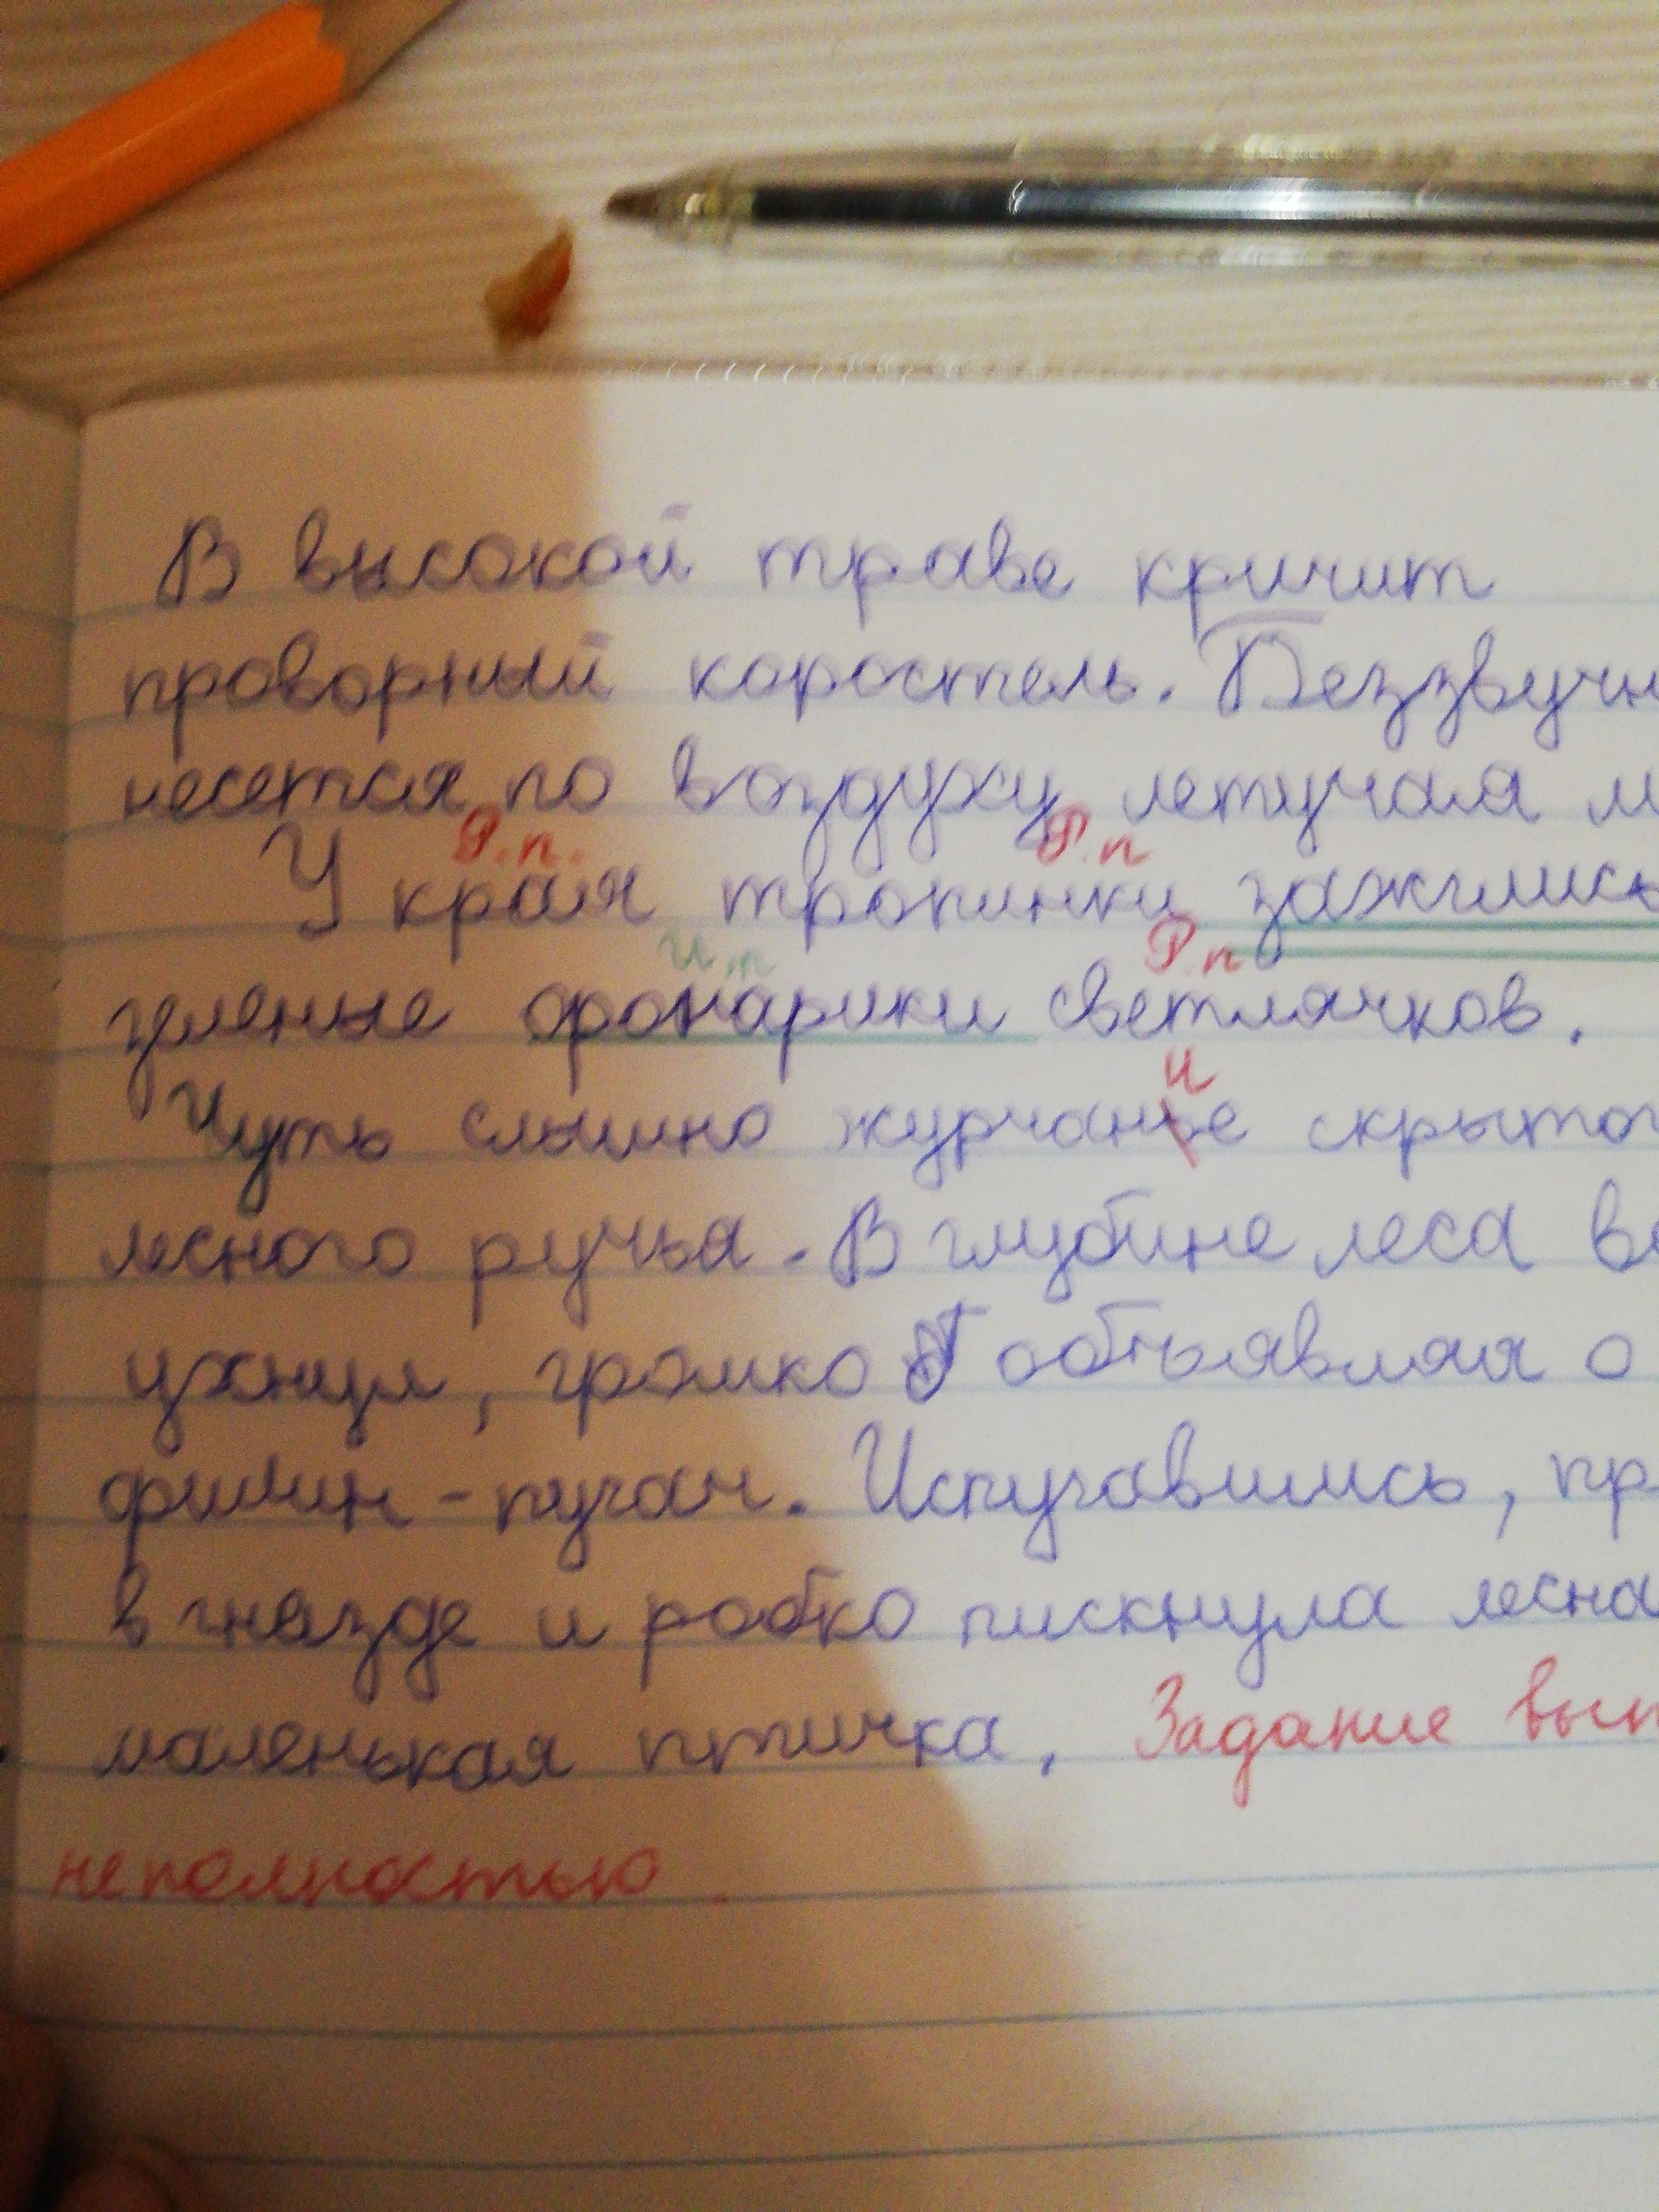 В высокой траве кричит
проворный коростель. Беззвучн
несется по воздуху летучая м
Р.п. Р.п
У края тропинки зажглись
И.п Р.п
зеленые фонарики светлячков.
и
Чуть слышно журчанье скрытог
лесного ручья. В глубине леса
ухнул, громко объявляя о
филин-пугач. Испугавшись, пр
в гнезде и робко пискнула лесна
маленькая птичка. Задание вып
неполностью.